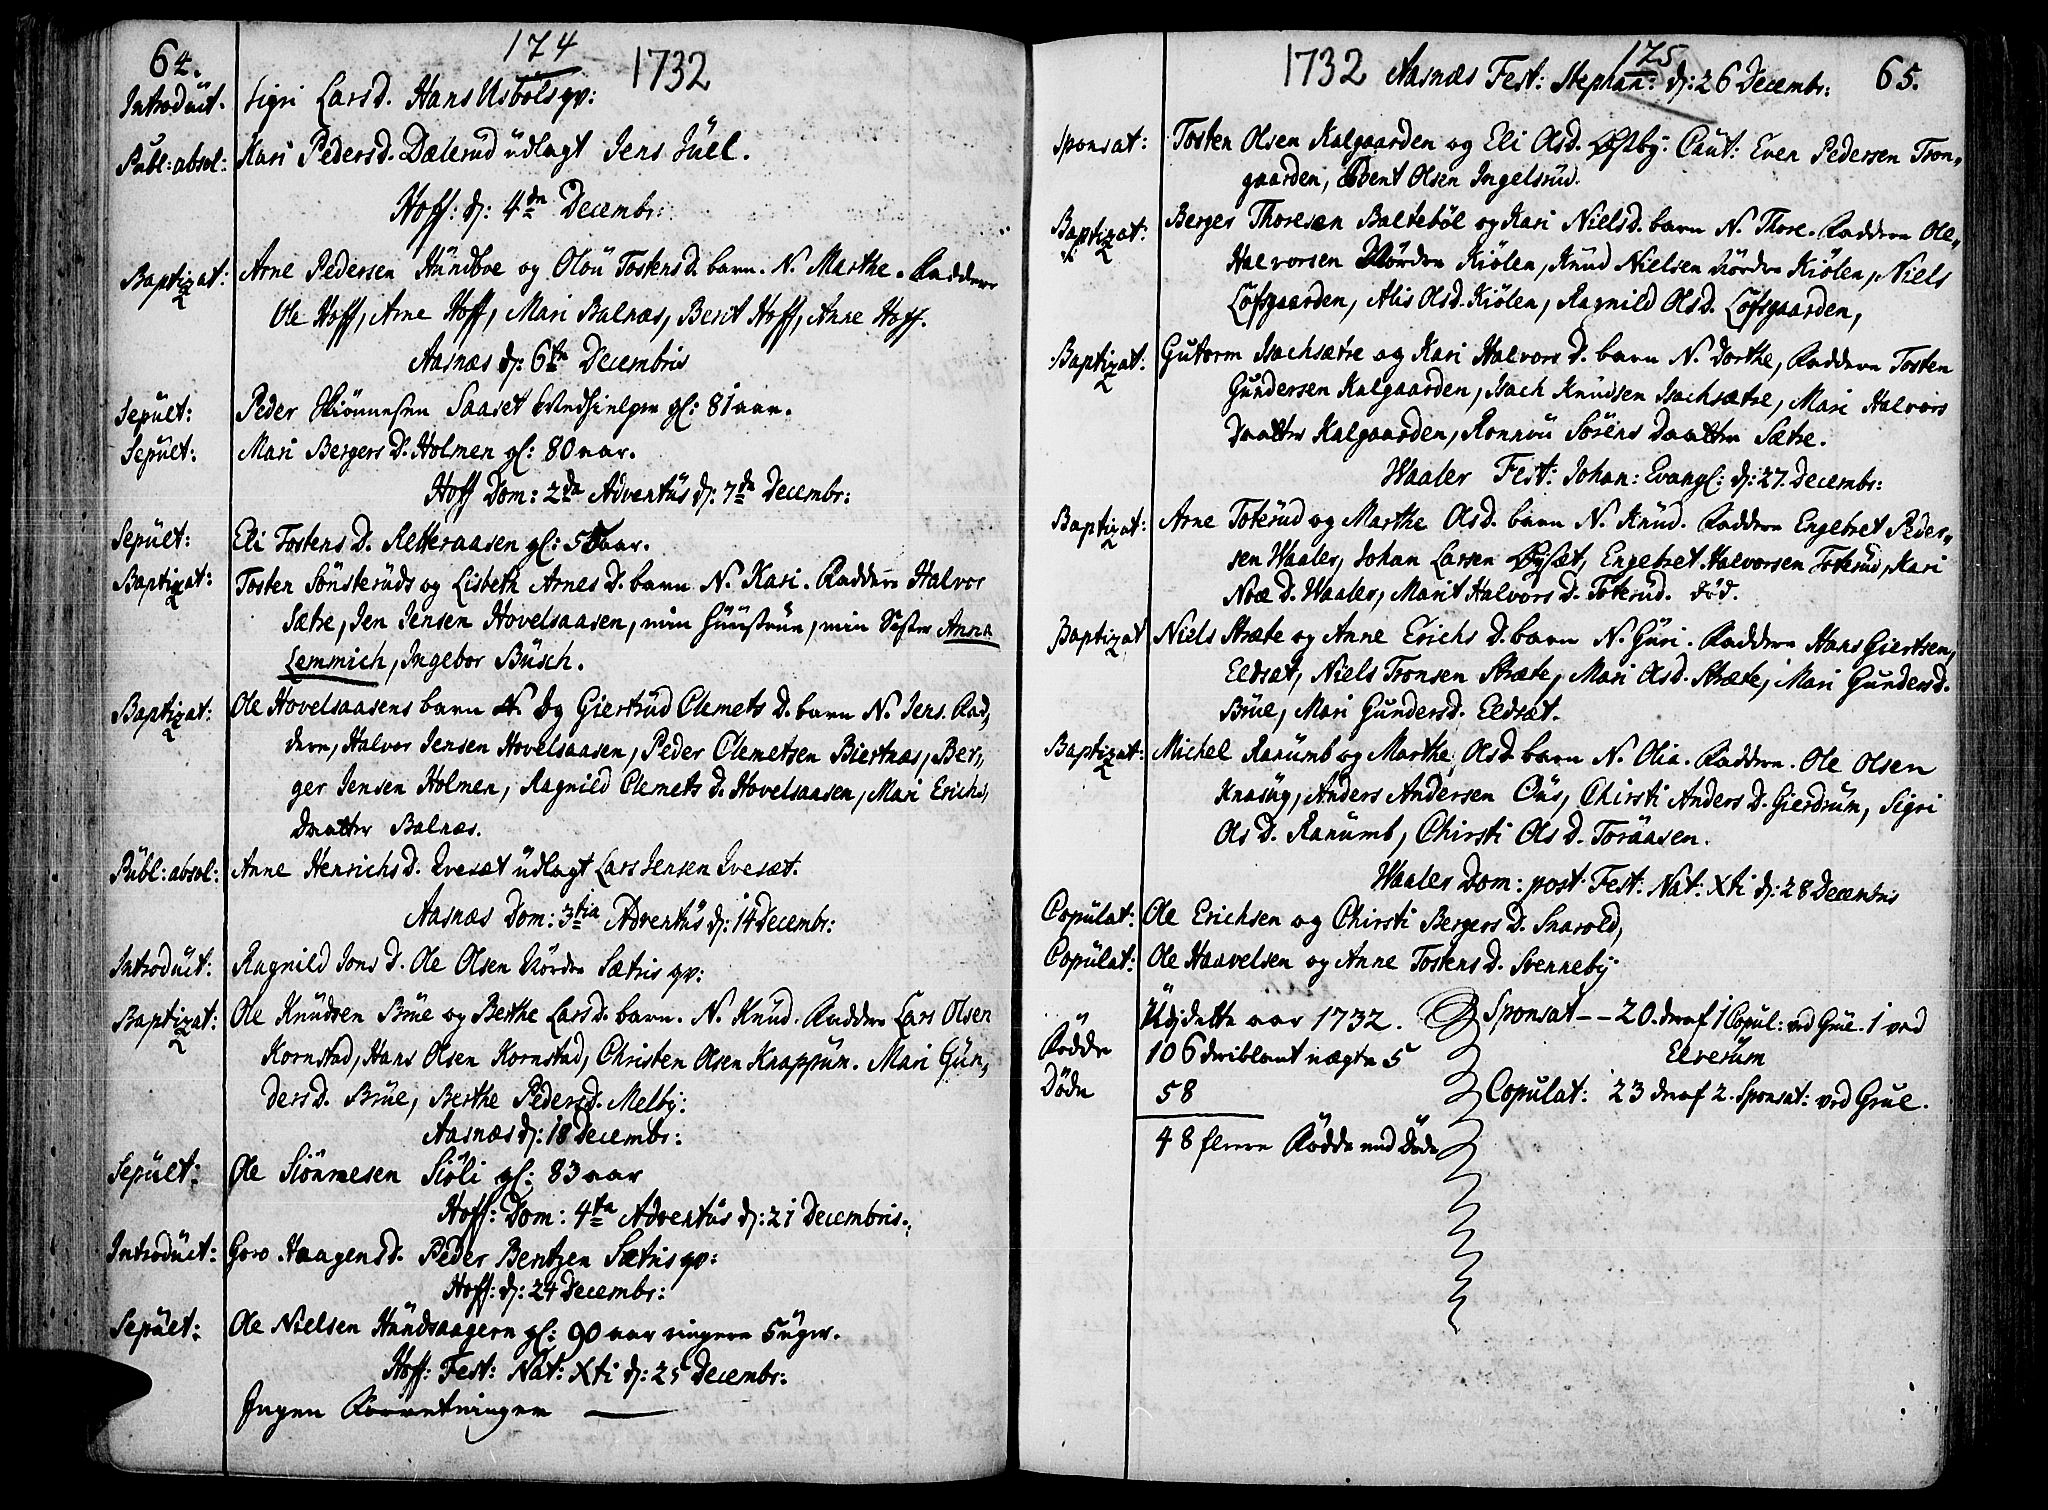 64.
174
1732
Introduct. Sigri Larsd. Hans Usbols qv:
Publ: absol: Kari Pedersd. Dælerud udlagt Jens Juel.
Hoff: d: 4de Decembr:
Baptizat: Arne Pedersen Hundboe og Olou Tostensd. barn. N. Marthe. Faddere
Ole Hoff, Arne Hoff, Mari Balnæs, Berit Hoff, Anne Hoff.
Aasnæs d: 6te Decembris
Sepult: Peder Skiønnesen Saaset gl: 81 aar.
Sepult: Mari Bergers D. Holmen gl: 80 aar.
Hoff Dom: 2da Adventus d: 7de Decembr:
Sepult: Eli Tostens D. Retteraasen gl: aar.
Baptizat: Tosten Sønsteruds og Lisbeth Arnes D. barn N. Kari. Faddere Halvor
Sætre, Jen Jensen Hovelsaasen, min Huustrue, min Søster Anna
Lemmich, Ingebor Busch.
Baptizat: Ole Hovelsaasens barn N. Og Giertrud Clemets D. barn N. Jens. Fad,
dere, Halvor Jensen Hovelsaasen, Peder Clemetsen Biertnæs, Ber,
ger Jensen Holmen, Ragnild Clemets D. Hovelsaasen, Mari Erichs,
Daatter Balnæs.
Publ: absol: Anne Henrichs D. Qvesæt udlagt Lars Jensen Qvesæt.
Aasnæs Dom: 3tia Adventus d: 14 Decembr:
Introduct: Ragnild Jons D. Ole Olsen Nordre Sætris qv:
Baptizat: Ole Knudsen Brue og Berthe Larsd. barn. N. Knud. Faddere Lars Olsen
Kornstad, Hans Olsen Kornstad, Christen Olsen Knappum. Mari Gun,
dersd. Brue, Berthe Pedersd. Melby:
Aasnæs d: 18 Decembr:
Sepult: Ole Siønnesen Siøli gl: 83 aar
Hoff: Dom: 4ta Adventus d: 21 Decembris.
Introduct: Goro Haagensd. Peder Bentzen Sætris qv:
Hoff: d: 24 Decembr:
Sepult: Ole Nielsen Hundsaageren gl: 90 aar ringere 5 uger.
Hoff: Fest: Nat: Xti d: 25 Decembr:
Ingen Forretninger
1732
175
Aasnæs Fest: Stephan: d: 26 Decembr: 65.
Sponsat: Tosten Olsen Kalgaarden og Eli Olsd. Østby: Caut: Even Pedersen Tron,
gaarden, Bent Olsen Ingelsrud.
Baptizat: Berger Thoresen Baltebøl og Kari Nielsd. barn N. Thore. Faddere Ole,
Halvorsen Nordre Kiølen, Knud Nielsen Nordre Kiølen, Niels
Løfsgaarden, Alis Olsd. Kiølen, Ragnild Olsd. Løfsgaarden,
Baptizat: Gutorm Isachsætre og Kari Halvors D. barn N. Dorthe, Faddere Tosten
Gundersen Kalgaarden, Isach Knudsen Isachsætre, Mari Halvors
Daatter Kalgaarden, Ronnou Sørens Daatter Sætre.
Waaler Fest: Johan: Evangl: d: 27. Decembr:
Baptizat: Arne Toterud og Marthe Olsd. barn N. Knud. Faddere Engebret Peder,
sen Waaler, Johan Larsen Øysæt, Engebret Halvorsen Toterud, Kari
Noæ D. Waaler, Marit Halvors D. Toterud. død.
Baptizat Niels Stræte og Anne Erichs D. barn N. Guri. Faddere Hans Giertsen,
Eldsæt, Niels Tronsen Stræte, Mari Olsd. Stræte, Mari Gundersd.
Brue, Mari Gundersd. Eldsæt.
Baptizat: Michel Ranumb og Marthe, Olsd. barn N. Olia. Faddere. Ole Olsen
Knasug, Anders Andersen Ous, Chirsti Anders D. Gierdrum, Sigri
Ols D. Ranumb, Chirsti Ols D. Toraasen.
Waaler Dom: post Fest: Nat: Xti d: 28 Decembris
Copulat: Ole Erichsen og Chirsti Bergers D. Snarold,
Copulat: Ole Haavelsen og Anne Tostens D. Svenneby
Udj dette aar 1732. Sponsat -- 20. deraf 1 Copul: ved Grue. 1 ved
Fødde 106 deriblant uægte 5 Elverum
Døde 58 Copulat: 23 deraf 2. Sponsat: ved Grue.
48 fleere Fødde end Døde